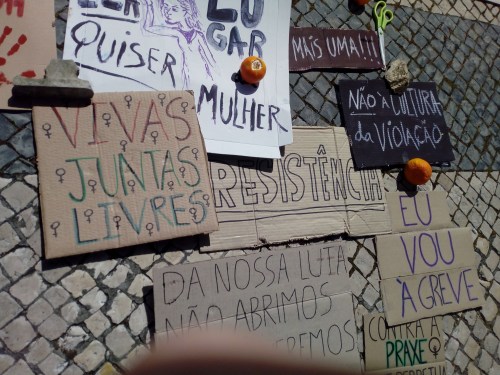 QUISER
LUGAR
MULHER
MAIS UMA!!!
NÃO À CULTURA
da VIOLAÇÃO
VIVAS
JUNTAS
LIVRES
RESISTÊNCIA
EU
VOU
À GREVE
DA NOSSA LUTA
NÃO ABRIMOS
CONTRA A
PRAXE